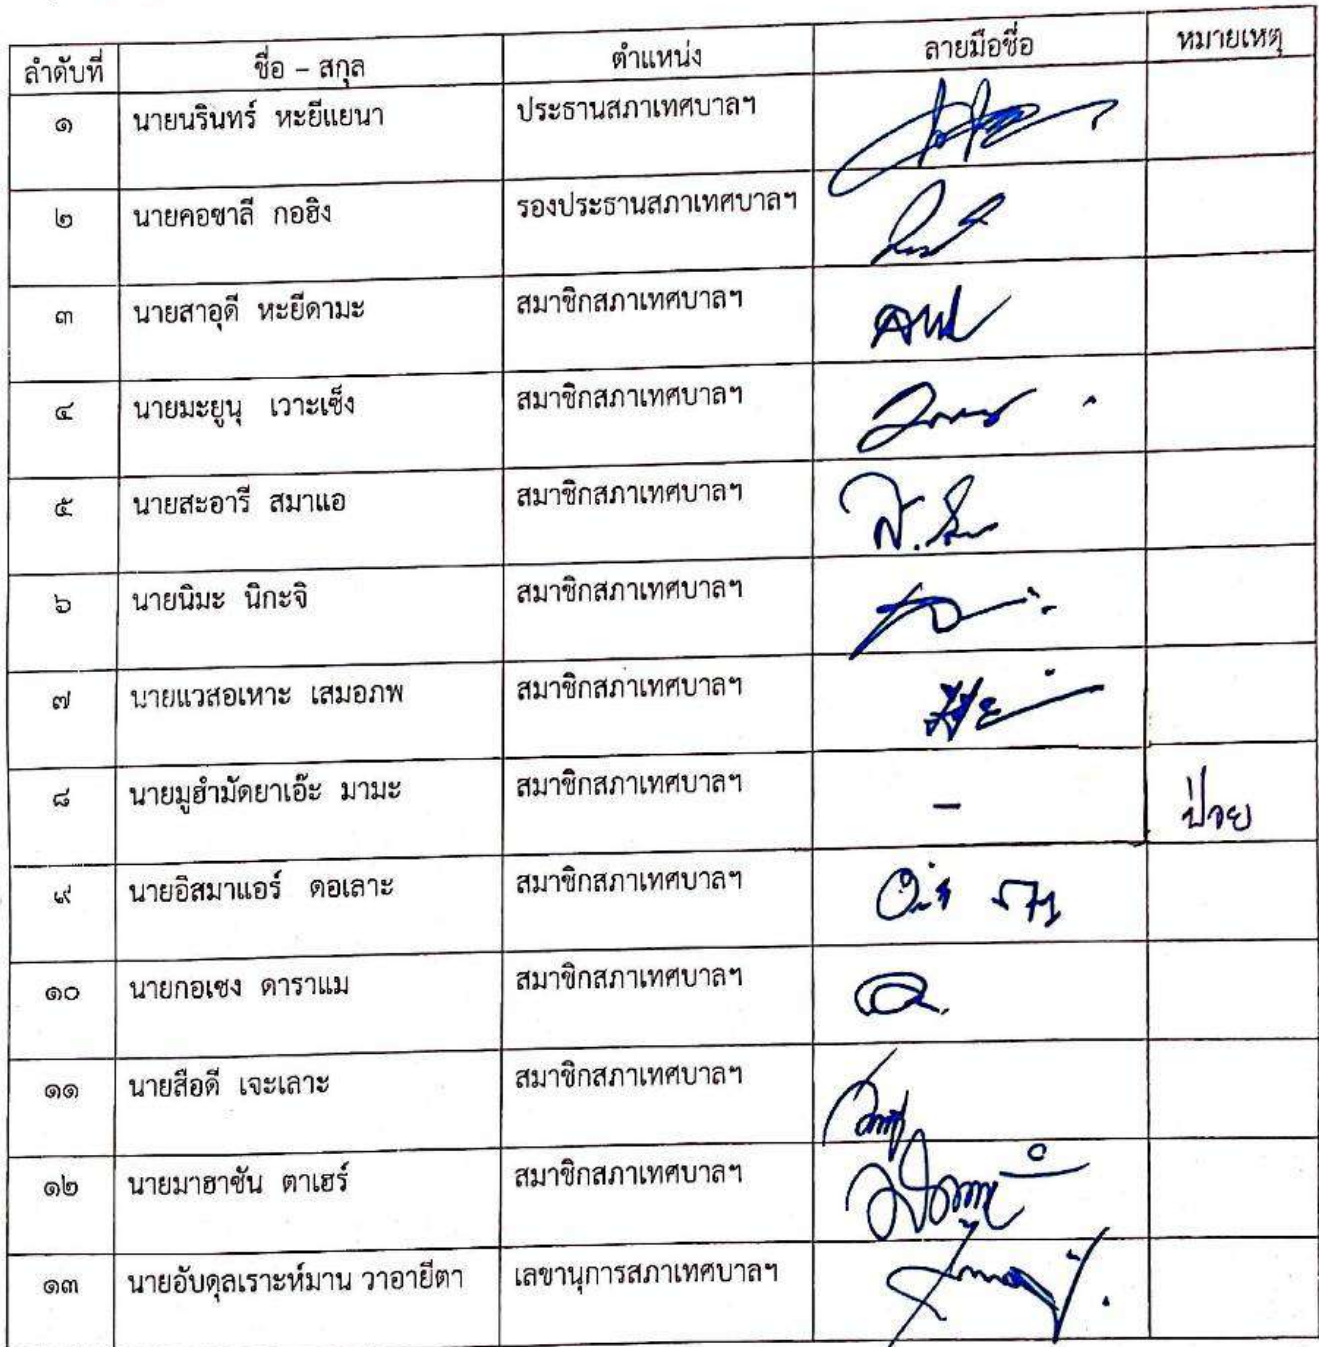 ลำดับที่ ชื่อ – สกุล ตำแหน่ง ลายมือชื่อ หมายเหตุ
๑ นายนรินทร์ หะยีแยนา ประธานสภาเทศบาลฯ
๒ นายคอซาลี กอฮิง รองประธานสภาเทศบาลฯ
๓ นายสาอุดี หะยีดามะ สมาชิกสภาเทศบาลฯ
๔ นายมะยูนุ เวาะเซ็ง สมาชิกสภาเทศบาลฯ
๕ นายสะอารี สมาแอ สมาชิกสภาเทศบาลฯ
๖ นายนิมะ นิกะจิ สมาชิกสภาเทศบาลฯ
๗ นายแวสอเหาะ เสมอภพ สมาชิกสภาเทศบาลฯ
๘ นายมูฮำมัดยาเอ๊ะ มามะ สมาชิกสภาเทศบาลฯ – ป่วย
๙ นายอิสมาแอร์ ดอเลาะ สมาชิกสภาเทศบาลฯ
๑๐ นายกอเซง ดาราแม สมาชิกสภาเทศบาลฯ
๑๑ นายสือดี เจะเลาะ สมาชิกสภาเทศบาลฯ
๑๒ นายมาฮาซัน ตาเฮร์ สมาชิกสภาเทศบาลฯ
๑๓ นายอับดุลเราะห์มาน วาอายีตา เลขานุการสภาเทศบาลฯ